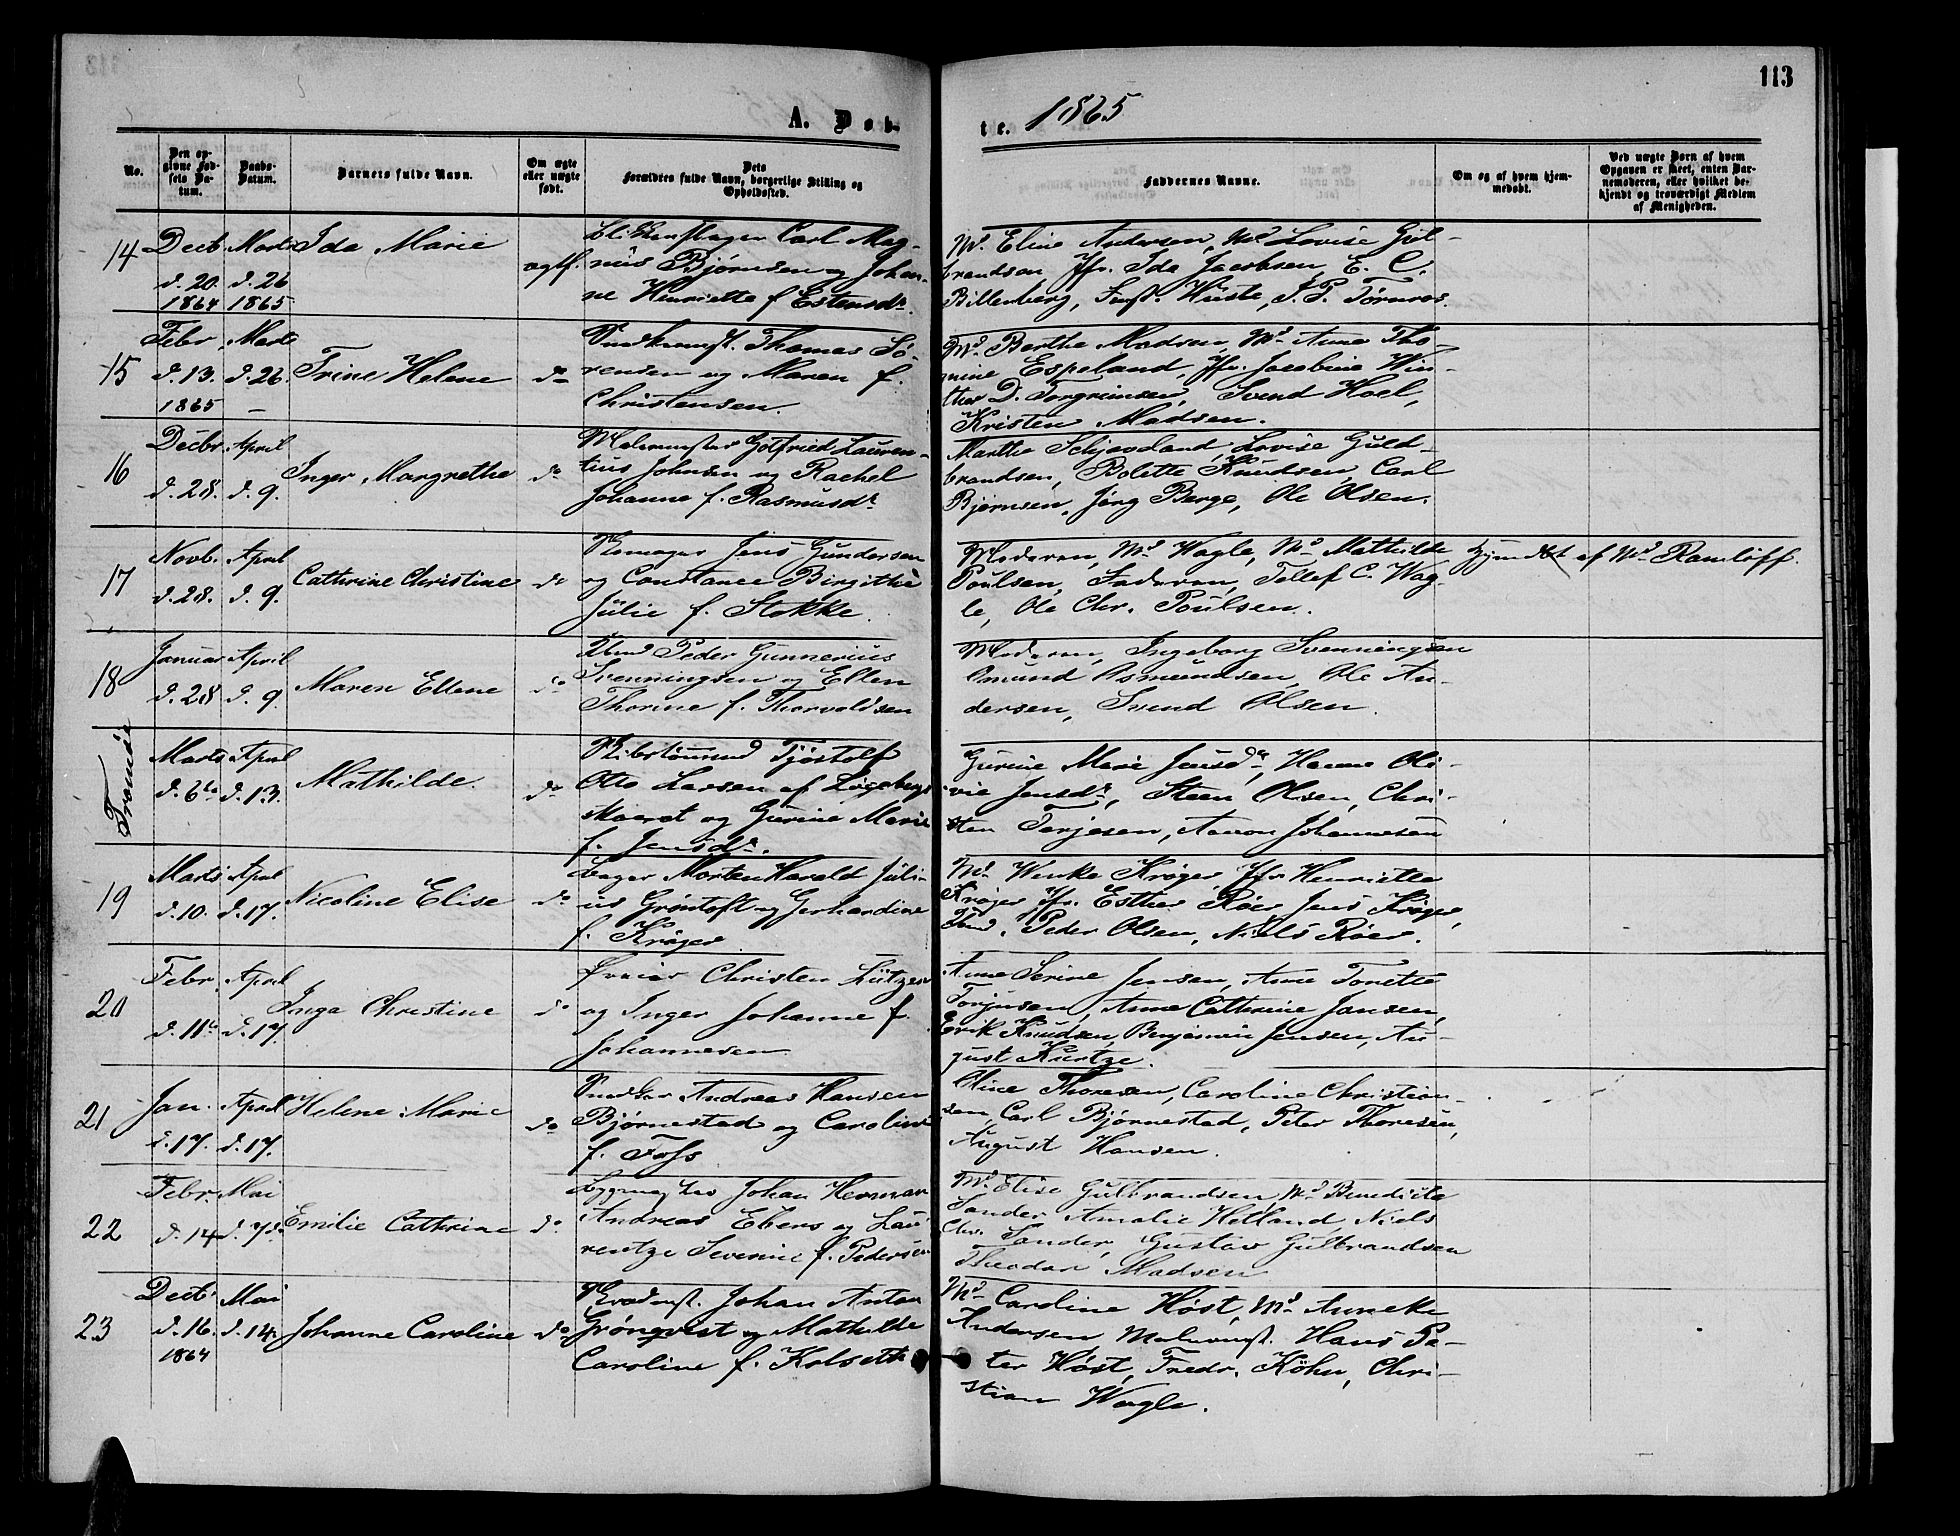 113
A. Døb-
te. 1865
No.
Den op-
givne Fød-
sels Da-
tum.
Daabs-
Datum.
Barnets fulde Navn.
Om ægte
eller uægte
født.
Dets
Forældres fulde Navn, borgerlige Stilling og
Opholdssted.
Faddernes Navne.
Om og af hvem hjem-
medøbt.
Ved uægte Børn af hvem
Opgaven er skeet, enten Bar-
nemoderen, eller hvilket be-
kjendt og troværdigt Medlem
af Menigheden.
14 Decb. d. 20. 1864 Marts d. 26 1865 Ida Marie ægtf.
Carl Mag-
nus Bjørnsen og Johan-
ne Henriette f. Estensdr.
Md. Eline Andersen, Md. Lovise Gul-
brandsen Jfr. Ida Jacobsen, E. C.
Billenberg, Huste, J. P. Tørnros.
15 Febr. d. 13. 1865 Marts d. 26. – Trine Helene do
Thomas Sø-
rensen og Maren f.
Christensen.
Md. Berthe Madsen, Md. Anne Tho-
mine Espeland, Jfr. Jacobine Win-
ther D. Torgrimsen, Svend Hoel,
Kristen Madsen.
16 Decbr. d. 28. April d. 9. Inger Margrethe do
Malermester Gotfried Lauren-
tius Johnsen og Rachel
Johanne f. Rasmusdr.
Marthe Schjævland, Lovise Guld-
brandsen, Bolette Knudsen, Carl
Bjørnsen, Jørg Berge, Ole Olsen.
17 Novb. d. 28. April d. 9. Cathrine Christine do
Jens Gundersen
og Constance Birgithe
Julie f. Stokke.
Moderen, Md. Wagle, Md. Mathilde
Poulsen, Faderen, Tellef C. Wag-
le, Ole Chr. Poulsen.
Hjemdøbt af Md. Ramløff.
18 Januar d. 28 April d. 9. Maren Ellene do
Peder Gunnerius
Svenningsen og Ellen
Thorine f. Thorvaldsen
Moderen, Ingeborg Svenningsen
Omund Osmundsen, Ole An-
dersen, Svend Olsen.
Tromøe Marts d. 6te April d. 13. Mathilde. do
Tjøstolf
Otto Larsen af
og Gurine Marie
f. Jensdr.
Gurine Marie Jensdr, Hanne Oli-
vie Jensdr, Steen Olsen, Chri-
sten Terjesen, Aanon Johannesen
19 Marts d. 10. April d. 17. Nicoline Elise do
Bager Morten Harald Juli-
us Grøntoft og Gerhardine
f. Krøger
Md. Wenke Krøger Jfr. Henriette
Krøger Jfr. Esther Röer Jens Krøger,
Peder Olsen, Niels Röer.
20 Febr. d. 11te April d. 17. Inga Christine do
Christen Lützen
og Inger Johanne f.
Johannesen
Anne Serine Jensen, Anne Tonette
Torjusen, Anne Cathrine Jansen,
Erik Knudsen, Benjamin Jensen, Au-
gust Kurtze.
21 Jan. d. 17. April d. 17. Helene Marie do
Snedker Andreas Hansen
Bjørnestad og Caroline
f. Foss
Oline Thoresen, Caroline Christian-
sen, Carl Bjørnestad, Peter Thoresen,
August Hansen.
22 Febr. d. 14 Mai d. 7de Emilie Cathrine do
Bygmester Johan Herman
Andreas Ebers og Lau-
rentze Severine f. Pedersen
Md. Elise Gulbrandsen, Md. Benedicte
Sander, Amalie Hetland, Niels
Chr. Sander, Gustav Gulbrandsen
Theodor Madsen
23 Decb. d. 16. 1864 Mai d. 14. Johanne Caroline do
Johan Anton
Grönqvist og Mathilde
Caroline f. Kolseth
Md. Caroline Høst, Md. Anneke
Andersen Malermst. Hans Pe-
ter Høst, Fredr. Köhn, Chri-
stian Wagle.